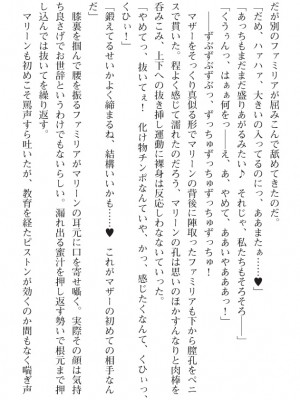 だが別のファミリアが屈みこんで舐めてきたのだ。
「だめ、ハァハァ、大きいの入ってるのにっ、ああまたぁ…♥」
「あっちもまだまだ盛りあがるみたい♪　それじゃ、私たちもそろそろ――」
「くうぅんっ、はぁ何をっ――え、あ、やめて、ああいやああああっ！」
――ずぷずぷずぷっ、ずっちゅずっちゅずっちゅずっちゅっ！
　マザーをそっくり真似る形でマリーンの背後に陣取ったファミリアも下から膣孔をペニ
スで貫いた。程よく感じて濡れたのだろう、マリーンの孔は思いのほかすんなりと肉棒を
呑みこみ、上下への抜き挿し運動に裸身は反応しないわけにはいかなくなっていった。
「やめてっ、抜いてぇ！　化け物チンポなんていや、かっ、感じたくなんて、くひぃっ、
くひぃーっ！」
「鍛えてるせいかよく締まるね、結構いいかも……♥　これがマザーの初めての相手なん
　膝裏を掴んで腰を振るファミリアがマリーンの耳元に口を寄せ囁く。実際その顔は気持
ち良さげでお世辞というわけでもないらしい。漏れ出る蜜汁を押し返す勢いで根元まで押
し込んでは抜いてを繰り返す。
　マリーンも初めこそ罵声すら吐いたが、教育を経たピストンが効くのか間もなく喘ぎ声